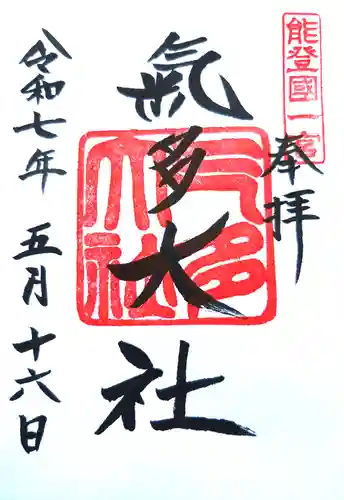 能登國一宮
奉拝
氣多大社
気多大社
令和七年 五月十六日